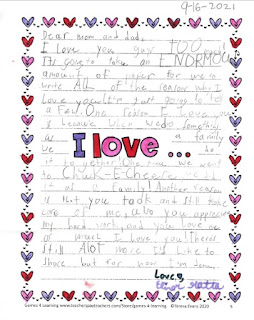 9-16-2021
Dear mom and dad,
I love you guys TOO
It's going to take an ENORMOU
amount of paper for me to
write ALL of the reason why I
love you. I'm just going to
a few. One reason I love you
is because when we do something
as a family
we
I love ...
it together. One time we went
to Chuck-E-Cheese
it as a family! Another reason
is that you took and still take
care of me, also you appreciate
my hard work and you love me
so much I love you! There's
still Alot more I'd like to
share but for now I'm done.
Love,
Games 4 Learning www.teacherspayteachers.com/Store/games-4-learning
©Teresa Evans 2020